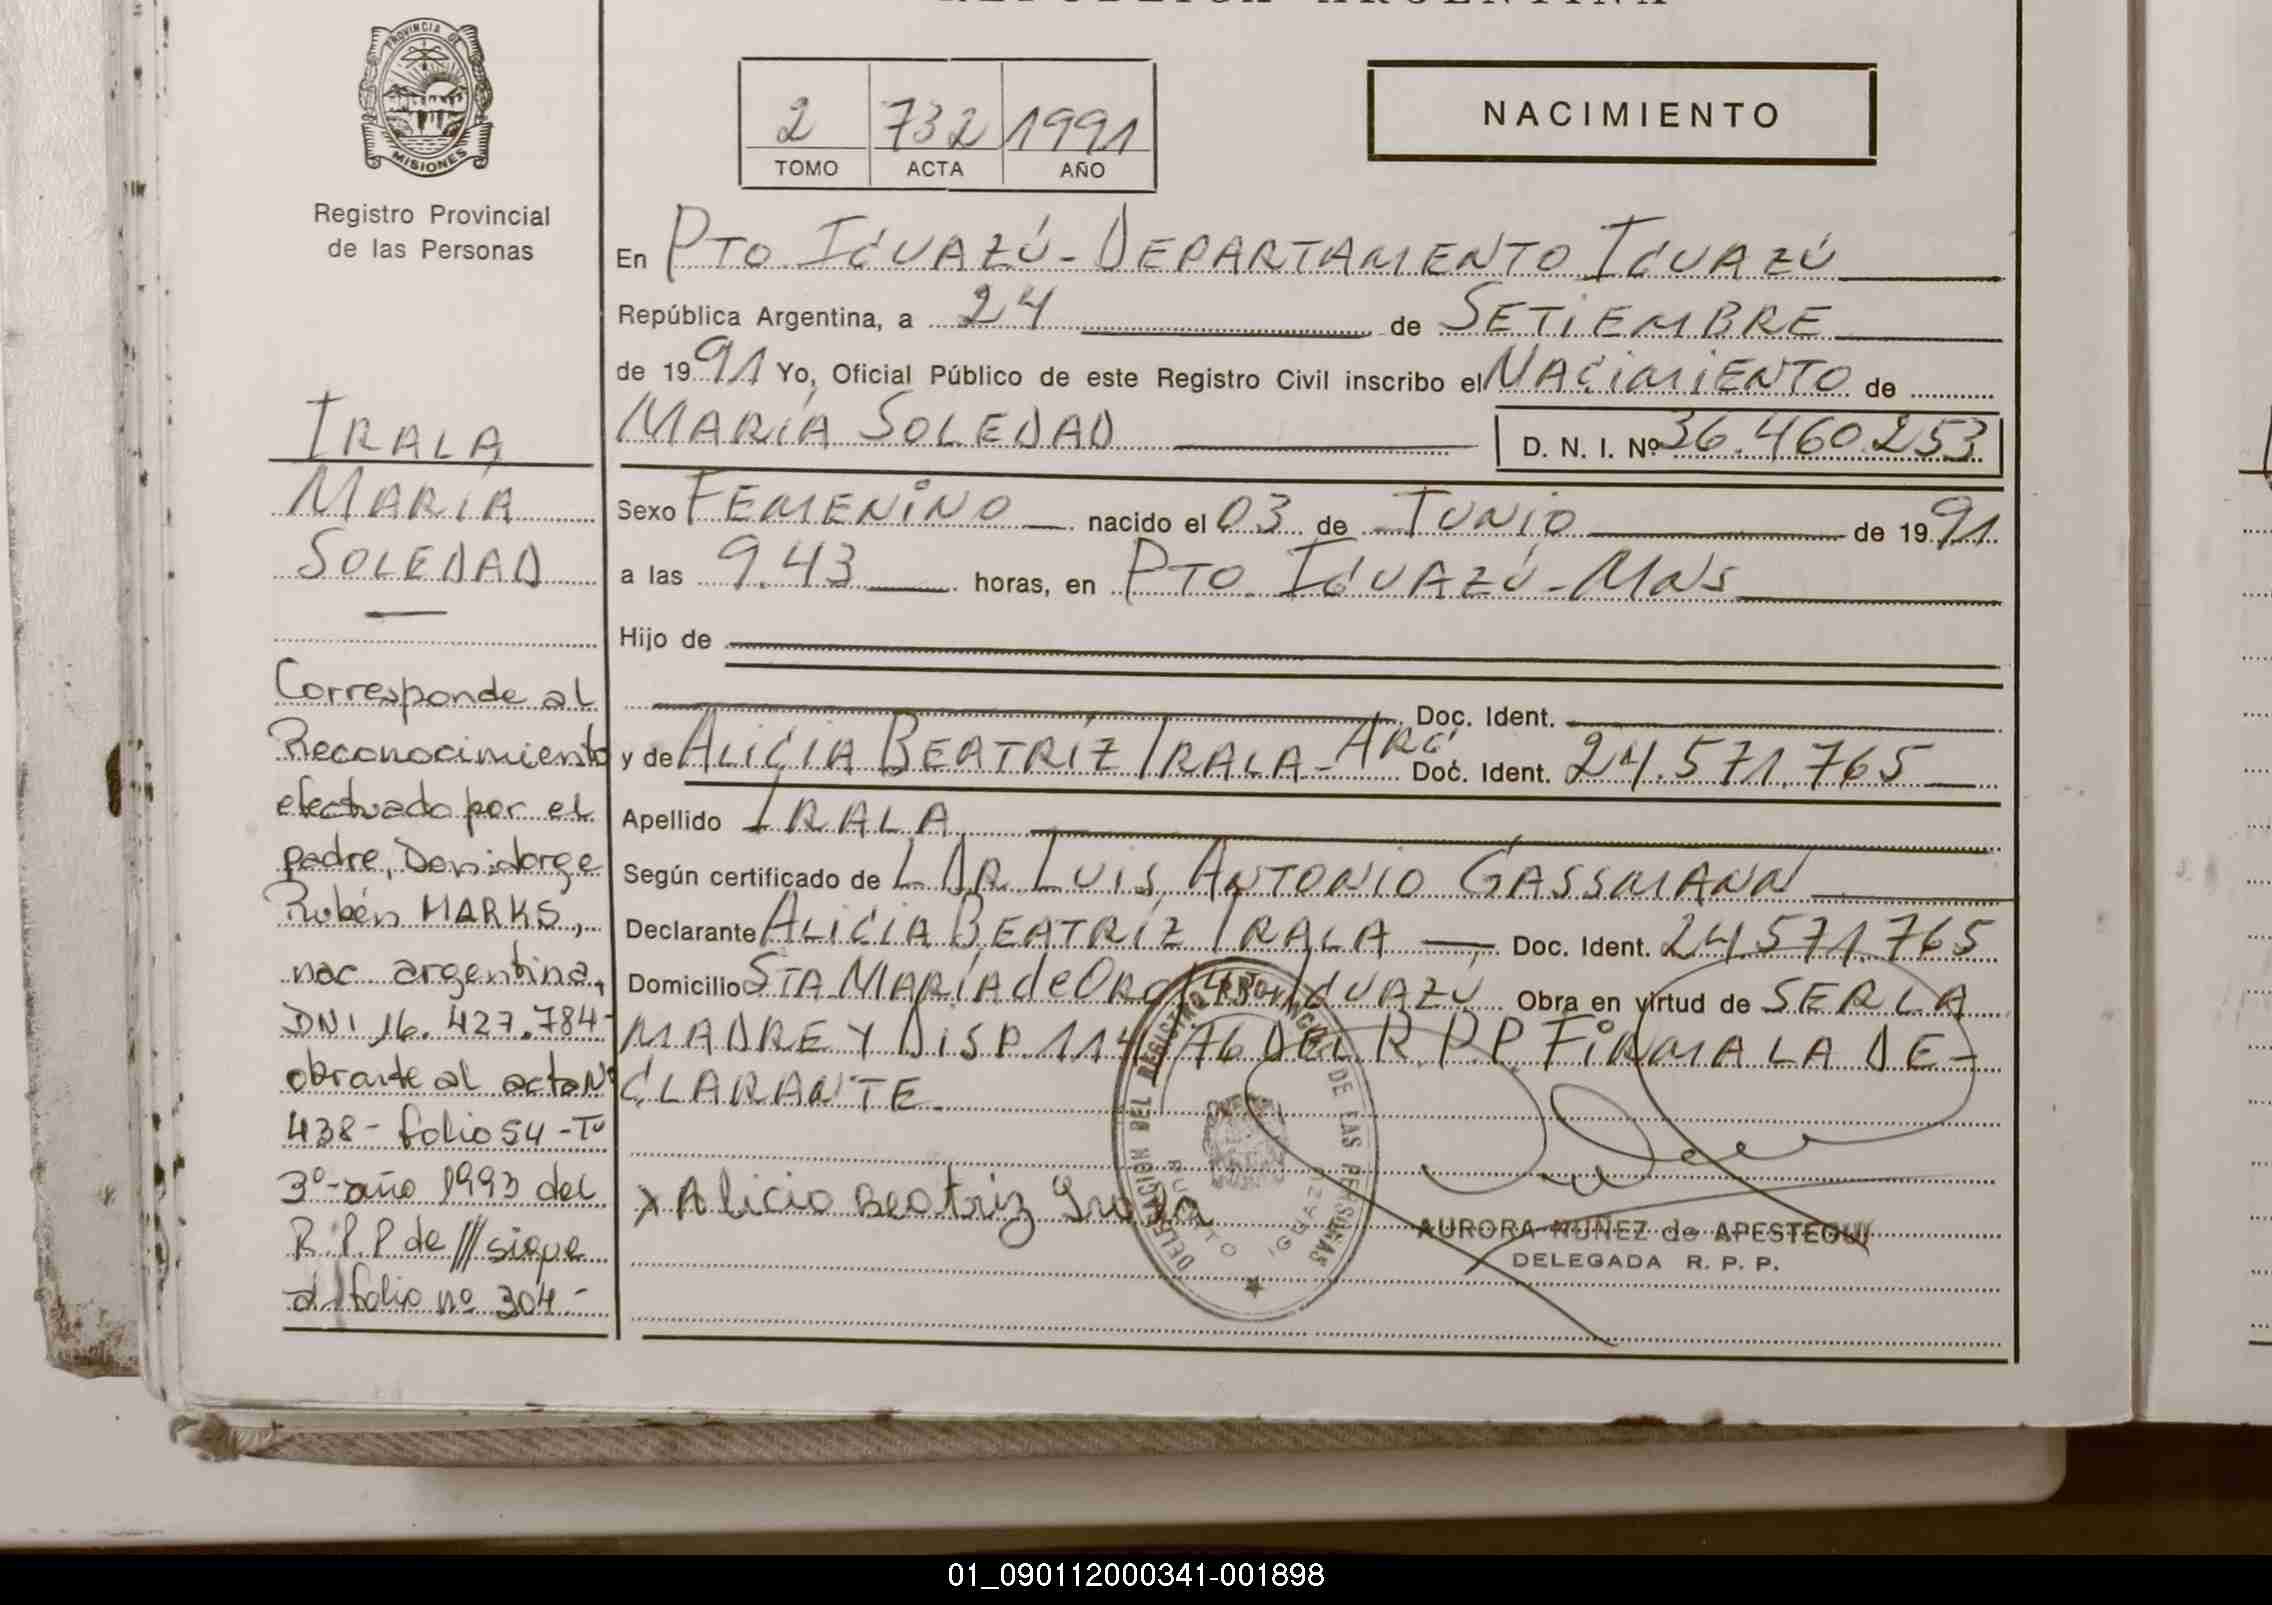 REPUBLICA ARGENTINA
PROVINCIA DE
MISIONES
Registro Provincial
de las Personas
2 732 1991
TOMO ACTA AÑO
NACIMIENTO
En PTO IGUAZÚ - DEPARTAMENTO IGUAZÚ
República Argentina, a 24 de SETIEMBRE
de 1991 Yo, Oficial Público de este Registro Civil inscribo el NACIMIENTO de
MARÍA SOLEDAD D. N. I. Nº 36.460.253
Sexo FEMENINO nacido el 03 de JUNIO de 1991
a las 9.43 horas, en PTO IGUAZÚ - MNS
Hijo de
Doc. Ident.
y de ALICIA BEATRÍZ IRALA - ARG. Doc. Ident. 24.571.765
Apellido IRALA
Según certificado de L DR LUIS ANTONIO GASSMANN
Declarante ALICIA BEATRÍZ IRALA Doc. Ident. 24.571.765
Domicilio STA MARÍA de ORO IGUAZÚ Obra en virtud de SER LA
MADRE Y DISP. 114/76 DEL R.P.P. FIRMA LA DE-
CLARANTE.
X Alicia Beatriz Irala
DELEGACION DEL REGISTRO PROVINCIAL DE LAS PERSONAS
PUERTO IGUAZU
AURORA NUÑEZ de APESTEGUI
DELEGADA R. P. P.
IRALA
MARÍA
SOLEDAD
Corresponde al
Reconocimiento
efectuado por el
padre, Don: Jorge
Rubén MARKS,
nac. argentina,
DNI 16.427.784-
obrante al acta Nº
438 - folio 54 - Tº
3º - año 1993 del
R.P.P de /// sigue
al folio nº 304.-
01_090112000341-001898